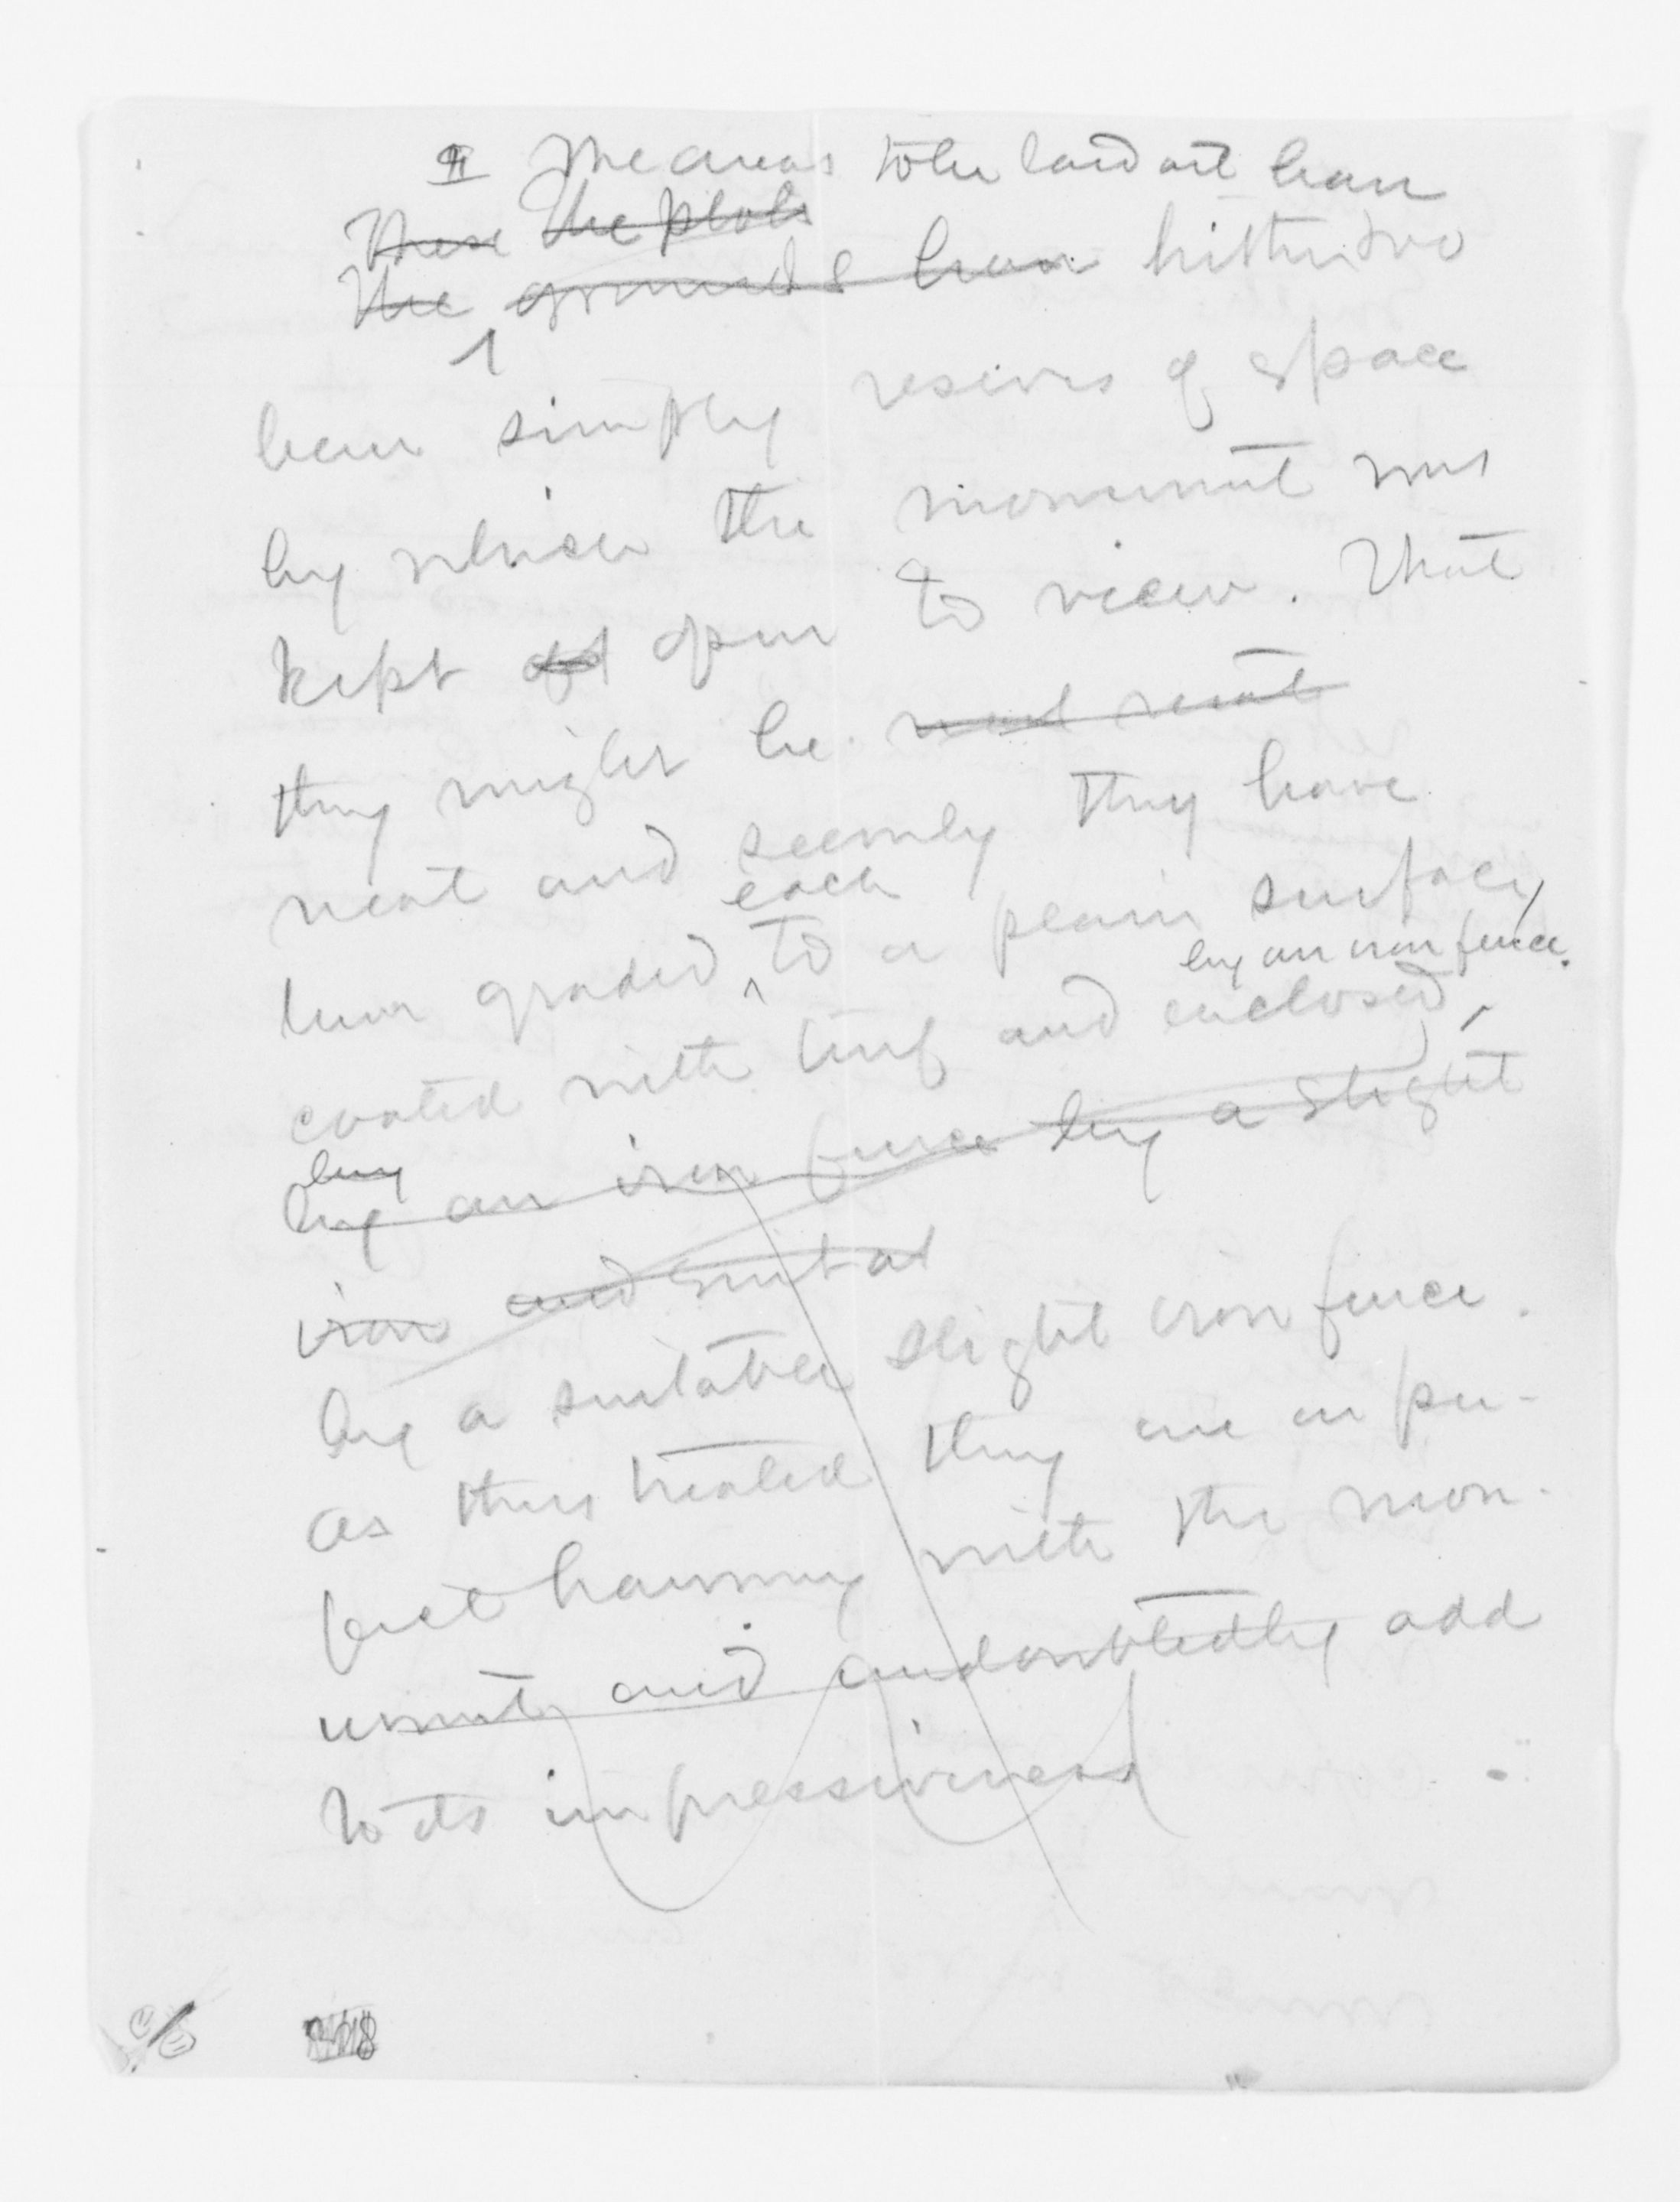 The areas to be laid out have
These The plots
The grounds have hitherto
been simply reserves of space
by which the monument was
kept open to view. That
they might be neat
neat and seemly they have
each
been graded, to a plain surface,
by an iron fence.
coated with turf and enclosed,
by
by an iron fence by a slight
iron and suitab
by a suitable slight iron fence.
As thus treated they are in per-
fect harmony with the mon-
ument, and undoubtedly add
to its impressiveness